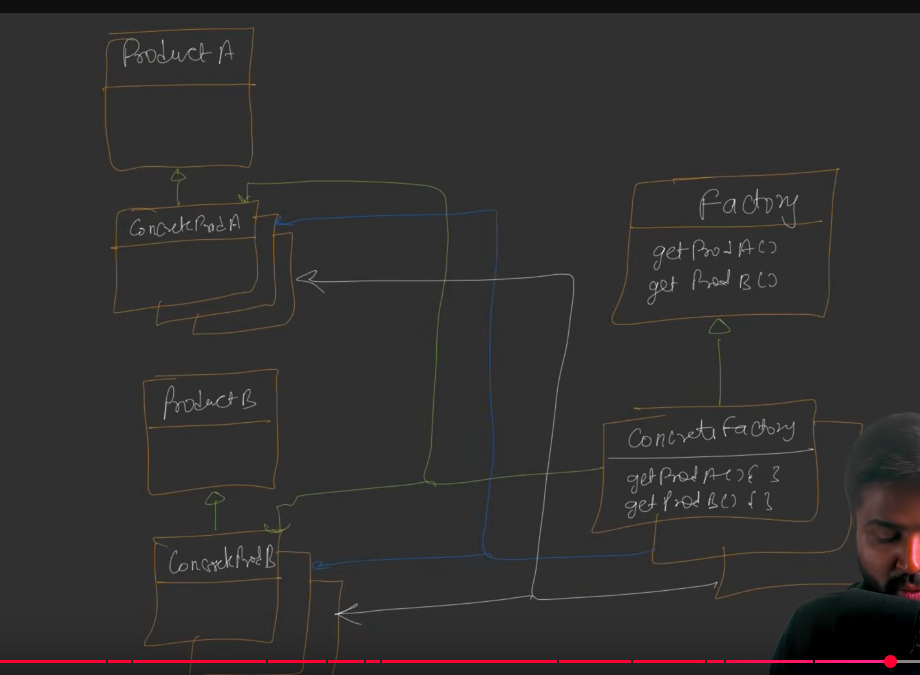 Product A
ConcreteProdA
ProductB
ConcreteProdB
Factory
getProdA()
get ProdB()
ConcreteFactory
getProdA(){ }
getProdB() { }